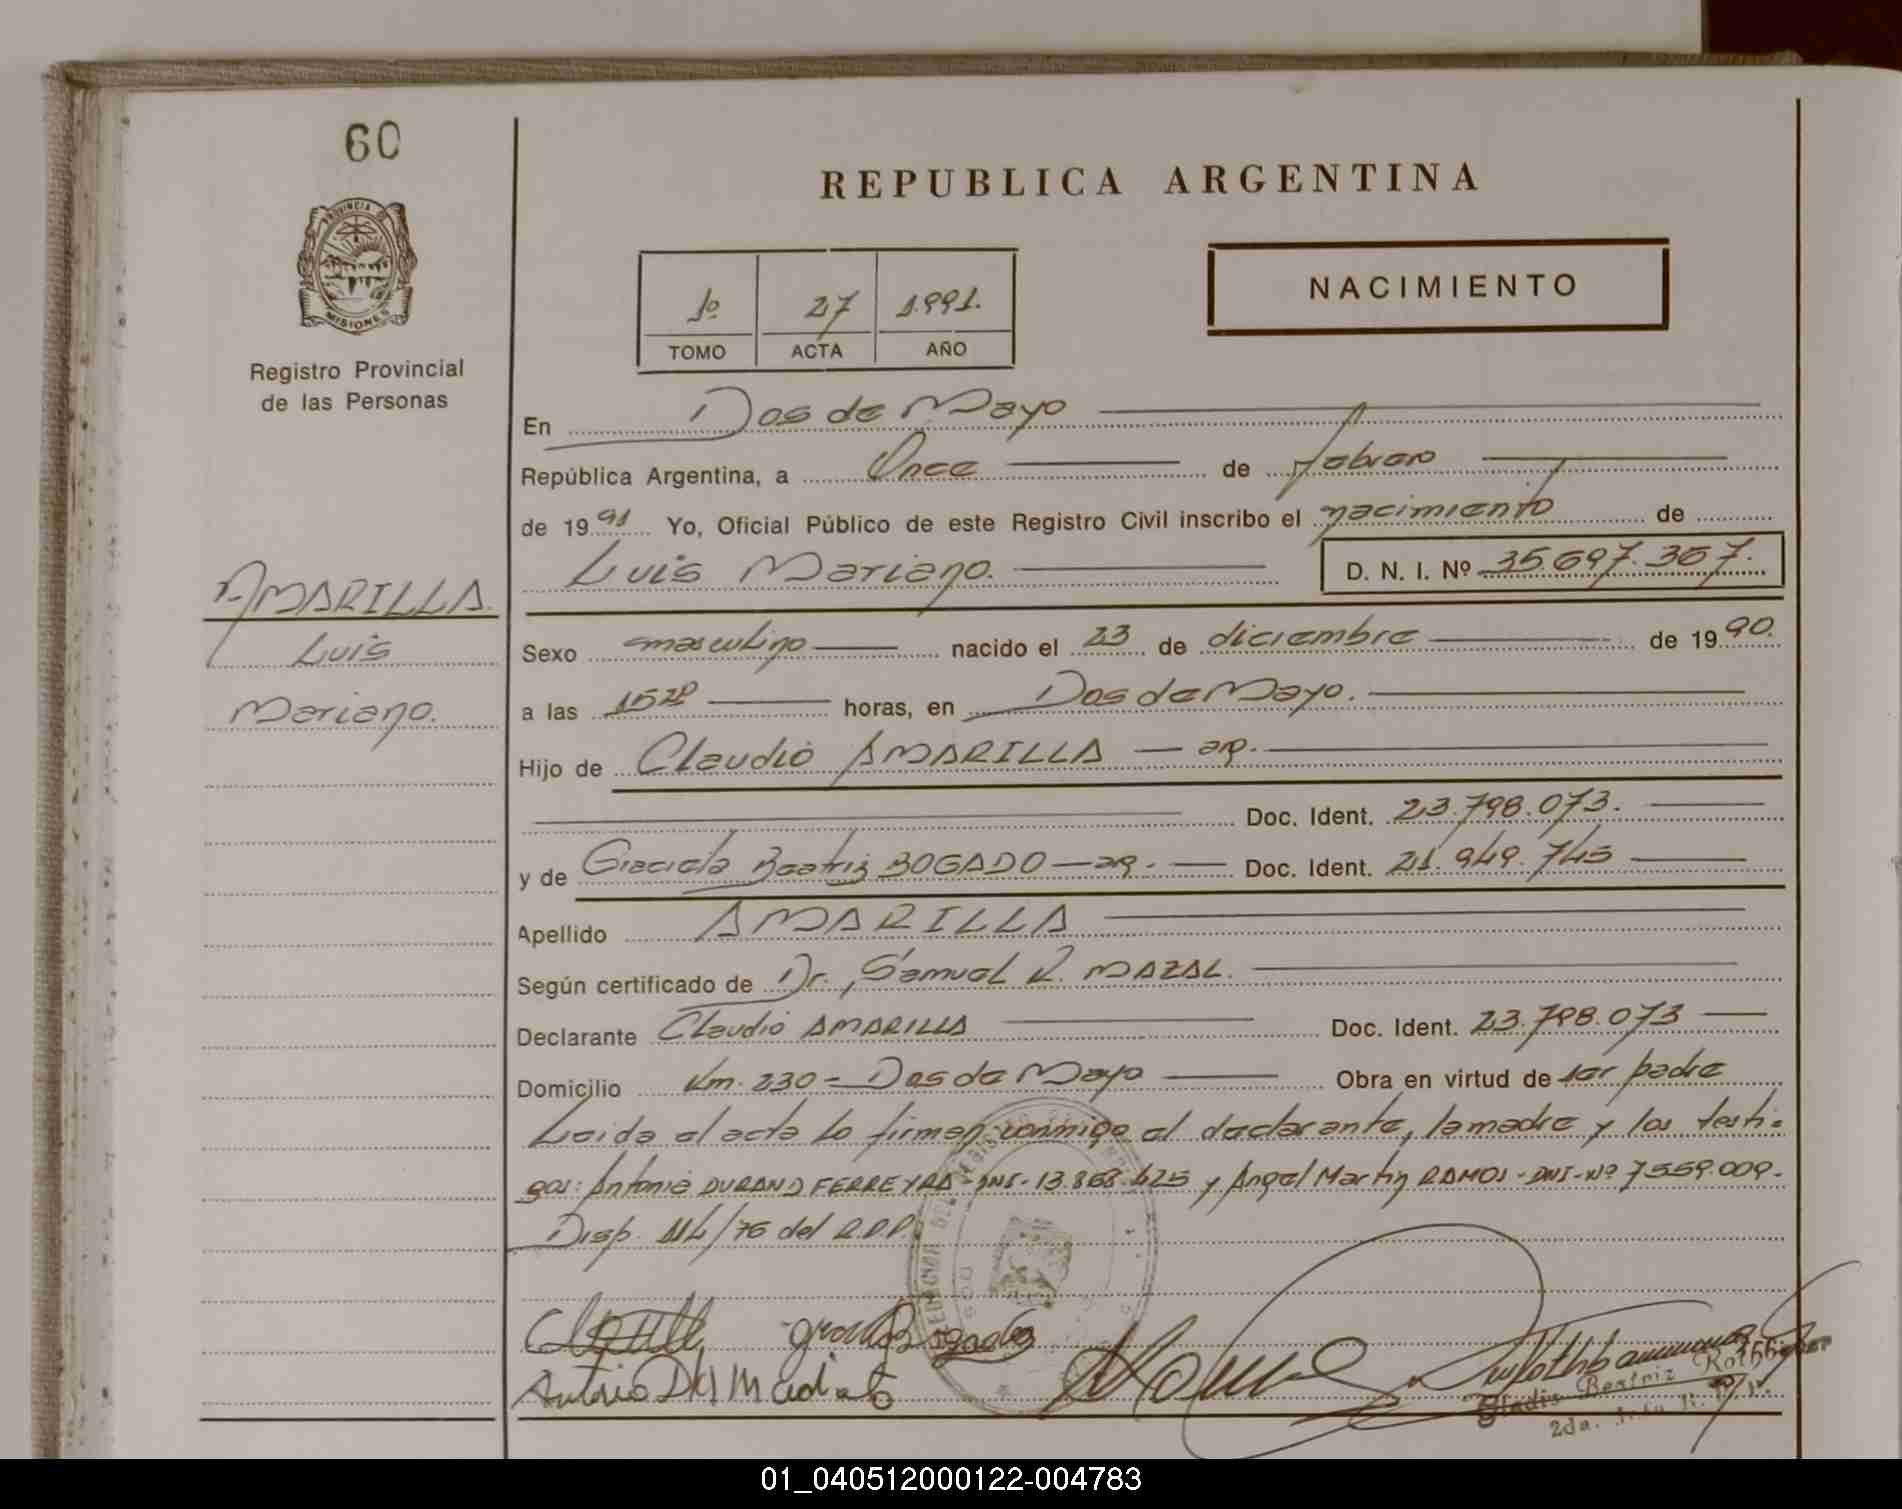 60
PROVINCIA DE
MISIONES
Registro Provincial
de las Personas
AMARILLA.
Luis
Mariano.
REPUBLICA ARGENTINA
1º 27 1.991.
TOMO ACTA AÑO
NACIMIENTO
En Dos de Mayo
República Argentina, a Once de febrero
de 1991 Yo, Oficial Público de este Registro Civil inscribo el nacimiento de
Luis Mariano. D. N. I. Nº 35.697.367.
Sexo masculino nacido el 23 de diciembre de 1990.
a las 1520 horas, en Dos de Mayo.
Hijo de Claudio AMARILLA — arg.
Doc. Ident. 23.798.073.
y de Graciela Beatriz BOGADO — arg. — Doc. Ident. 21.949.745
Apellido AMARILLA
Según certificado de Dr., Samuel R. MAZAL.
Declarante Claudio AMARILLA Doc. Ident. 23.798.073
Domicilio Km. 230 = Dos de Mayo Obra en virtud de ser padre
Leida el acta lo firman conmigo el declarante, la madre y los testi=
gos: Antonio DURAND FERREYRA - DNI - 13.868.425 y Angel Martin RAMOS - DNI - Nº 7559.009.
Disp. 114/76 del R.P.P.
Bogado
Antonio
Gladis Beatriz
2da.
01_040512000122-004783